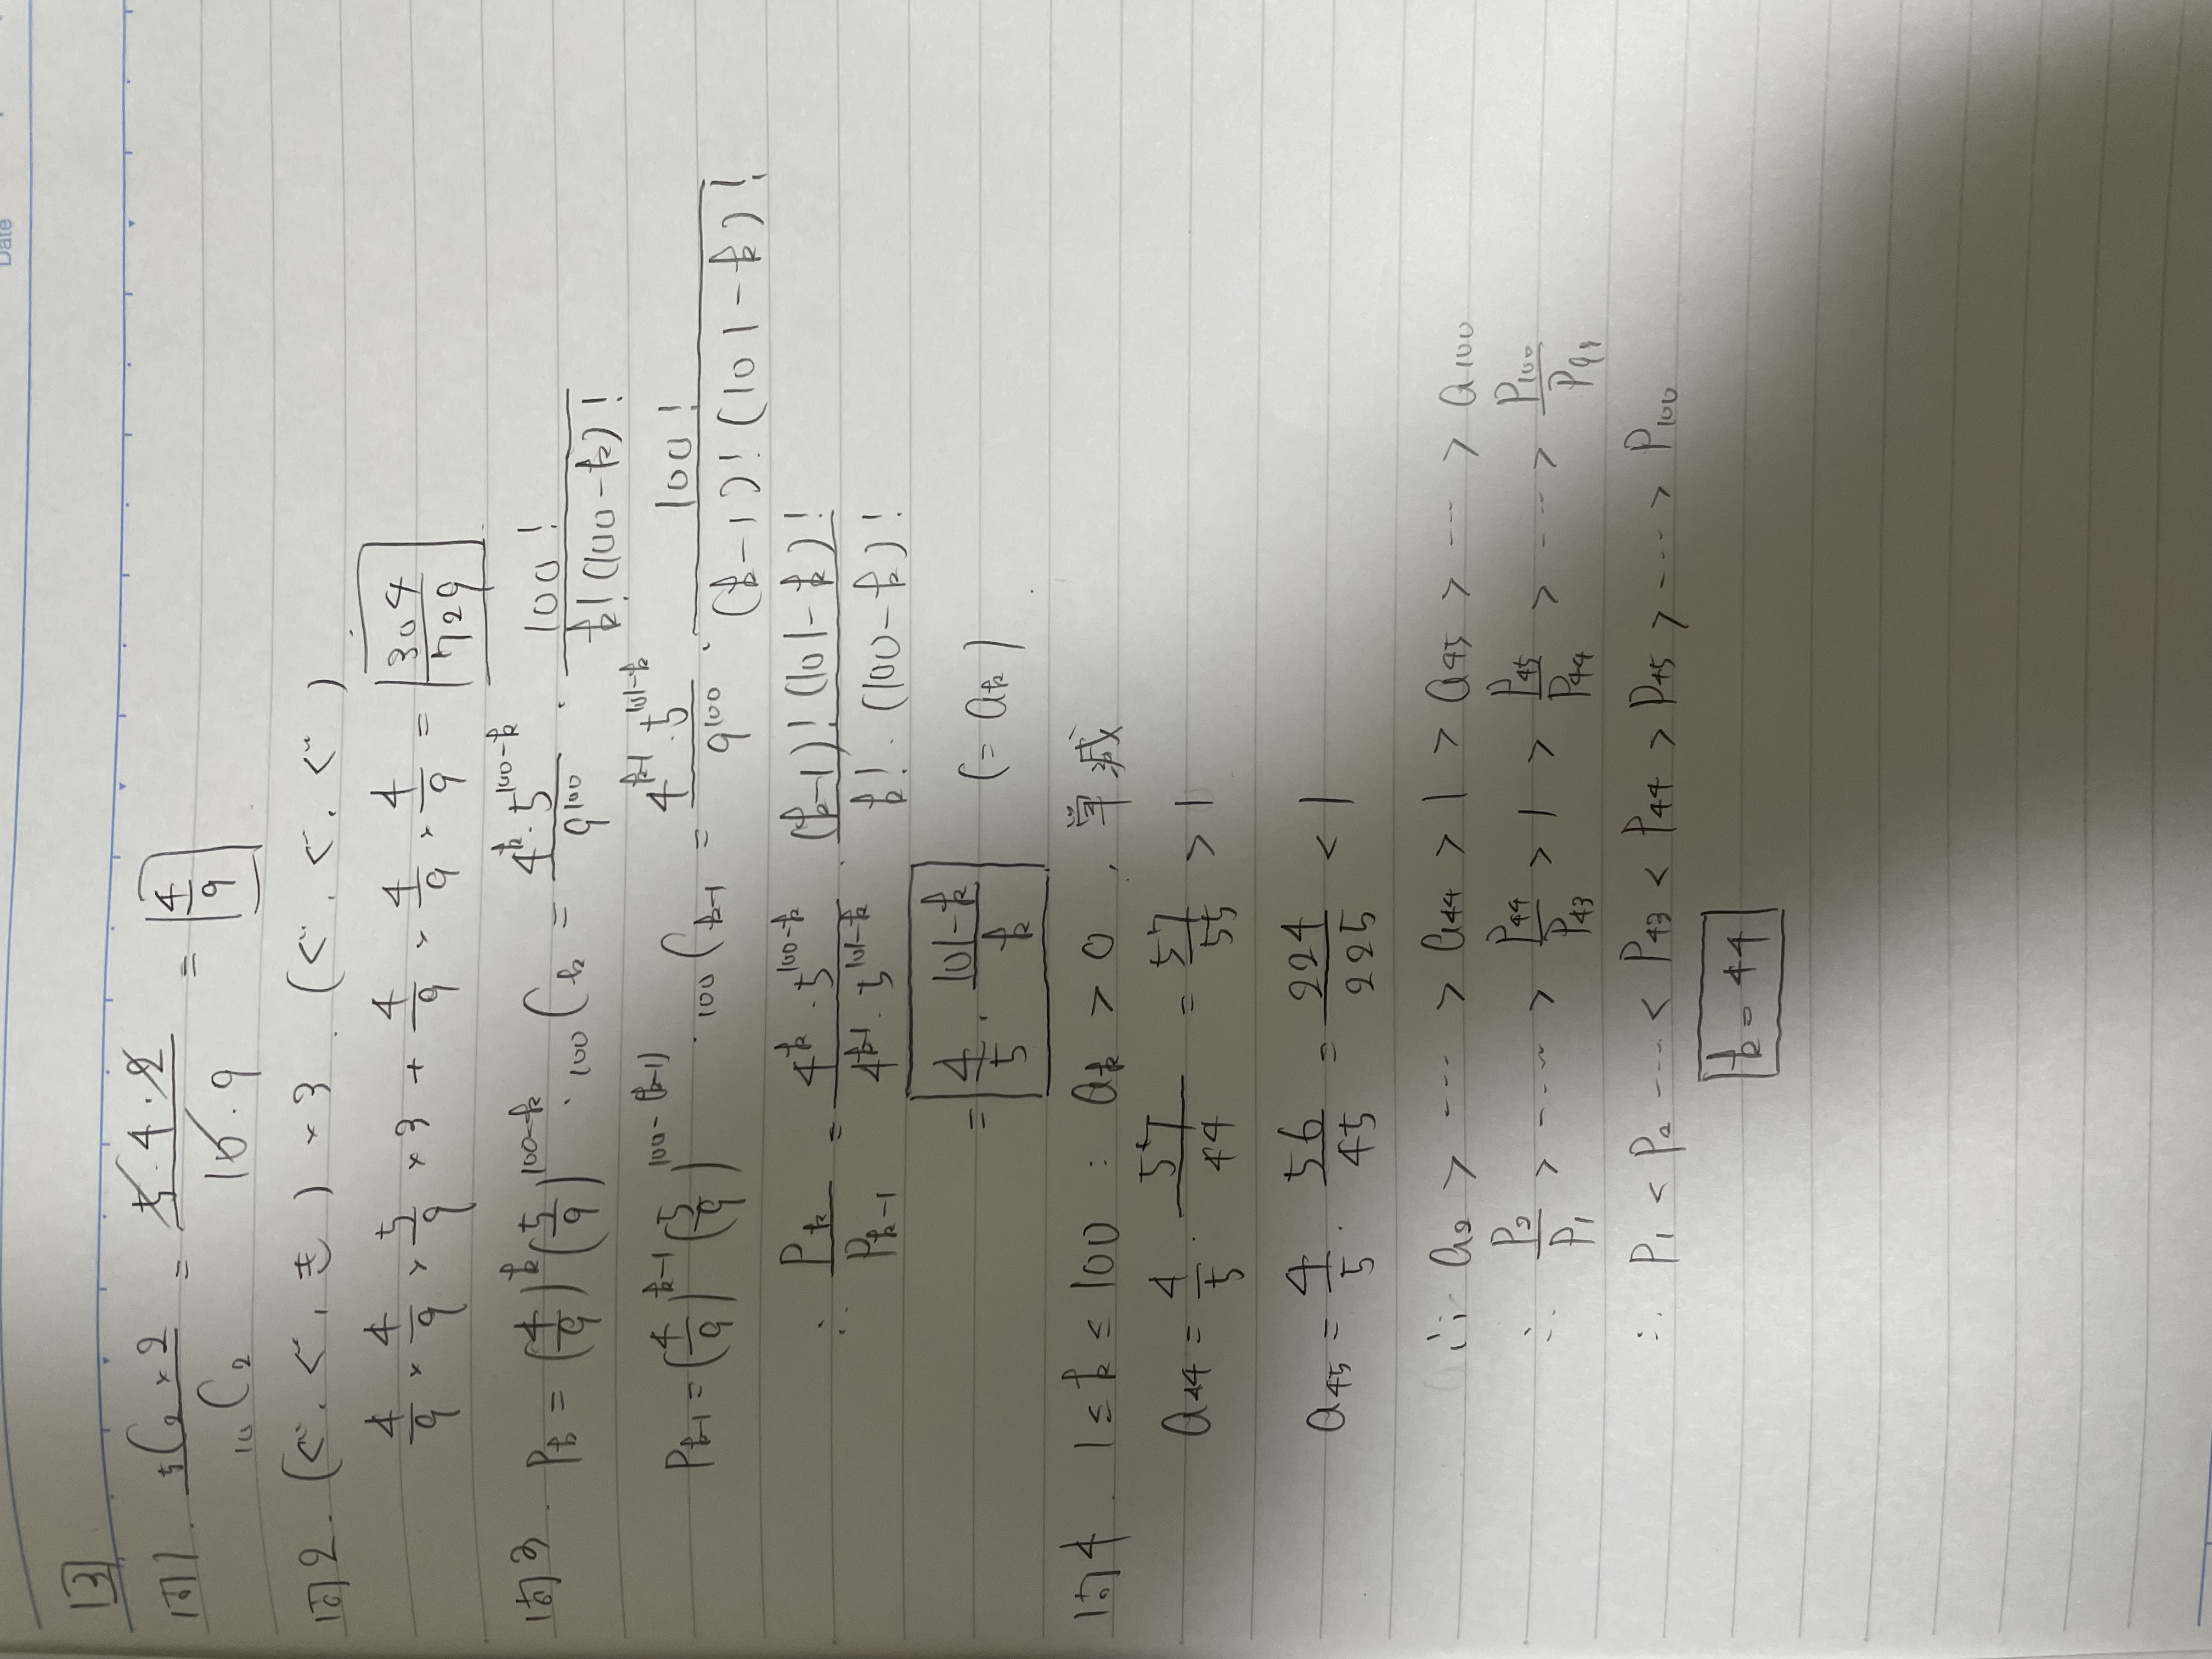 Date
3
問1. 5C2×2 / 10C2 = 5·4·2 / 10·9 = 4/9
問2. (ぐ, ぐ, き) × 3. (ぐ, ぐ, ぐ)
4/9 × 4/9 × 5/9 × 3 + 4/9 × 4/9 × 4/9 = 304/729
問3. Pk = (4/9)^k (5/9)^(100-k) · 100Ck = 4^k·5^(100-k) / 9^100 · 100! / k!(100-k)!
Pk-1 = (4/9)^(k-1) (5/9)^(100-(k-1)) · 100Ck-1 = 4^(k-1)·5^(101-k) / 9^100 · 100! / (k-1)!(101-k)!
∴ Pk / Pk-1 = 4^k·5^(100-k) / 4^(k-1)·5^(101-k) · (k-1)!(101-k)! / k!·(100-k)!
= 4/5 · 101-k / k (= ak)
問4. 1≤k≤100 : ak > 0, 単減
a44 = 4/5 · 57/44 = 57/55 > 1
a45 = 4/5 · 56/45 = 224/225 < 1
∴ a2 > ---- > a44 > 1 > a45 > --- > a100
∴ P2/P1 > ---- > P44/P43 > 1 > P45/P44 > --- > P100/P99
∴ P1 < P2 ---- < P43 < P44 > P45 > ---- > P100
k=44